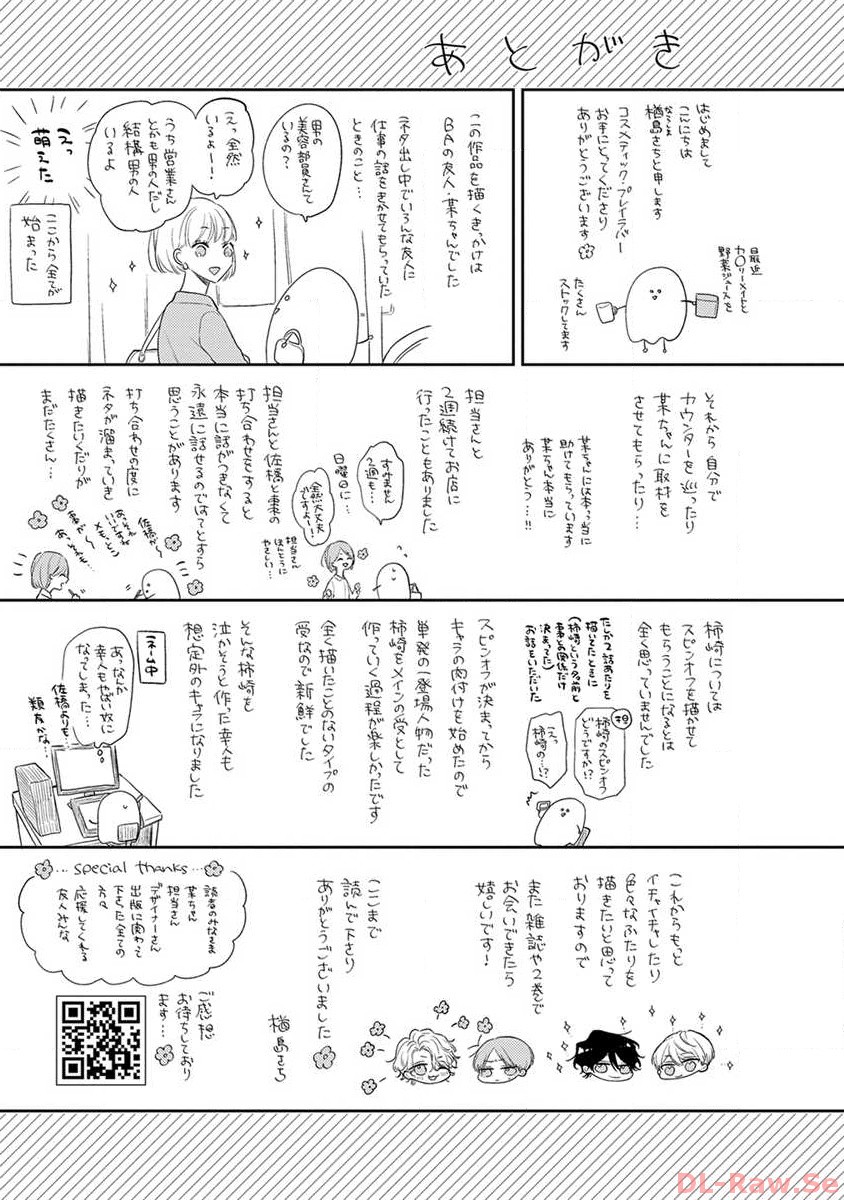 あとがき
はじめまして
こんにちは
楢島さちと申します
ならしま
コスメティック・プレイラバー
お手にとってくださり
ありがとうございます
最近
カ○リーメイトと
野菜ジュースを
たくさん
ストックしてます
この作品を描くきっかけは
BAの友人・某ちゃんでした
ネタ出し中でいろんな友人に
仕事の話をきかせてもらっていた
ときのこと…
男の
美容部員さんて
いるの?
えっ全然
いるよー!
うち営業さん
とかも男の人だし
結構男の人
いるよ
えっ
萌えた
ここから全てが
始まった
それから自分で
カウンターを巡ったり
某ちゃんに取材を
させてもらったり…
某ちゃんには本っ当に
助けてもらっています
某ちゃん本当に
ありがとう…!!
担当さんと
2週続けてお店に
行ったこともありました
すみません
2週も…
全然大丈夫
ですよー!
日曜日に…
担当さん
ほんとうに
やさしい…
担当さんと佐橋と棗の
打ち合わせをすると
本当に話がつきなくて
永遠に話せるのでは?とすら
思うことがあります
打ち合わせの度に
ネタが溜まっていき
描きたいくだりが
まだたくさん…
佐橋が〜
棗が〜
柿崎については
スピンオフを描かせて
もらうことになるとは
全く思っていませんでした
たしか2話めあたりを
描いてたときに
(柿崎という名前と
棗との関係だけ
決まってた)
お話をいただいた
担
柿崎のスピンオフ
どうですか!?
えっ
柿崎の…!?
スピンオフが決まってから
キャラの肉付けを始めたので
単発の一登場人物だった
柿崎をメインの受として
作っていく過程が楽しかったです
全く描いたことのないタイプの
受なので新鮮でした
そんな柿崎を
泣かそうと作った幸人も
想定外のキャラになりました
ネーム中
あっなんか
幸人もやばい奴に
なってしまった…
佐橋よりも…
類友かな…
これからもっと
イチャイチャしたり
色々なふたりを
描きたいと思って
おりますので
また雑誌や2巻で
お会いできたら
嬉しいです!
ここまで
読んで下さり
ありがとうございました
楢島さち
…special thanks…
読者のみなさま
某ちゃん
担当さん
デザイナーさん
出版に関わって
下さった全ての
方々
応援してくれる
友人みんな
ご感想
お待ちしており
ます…
DL-Raw.Se